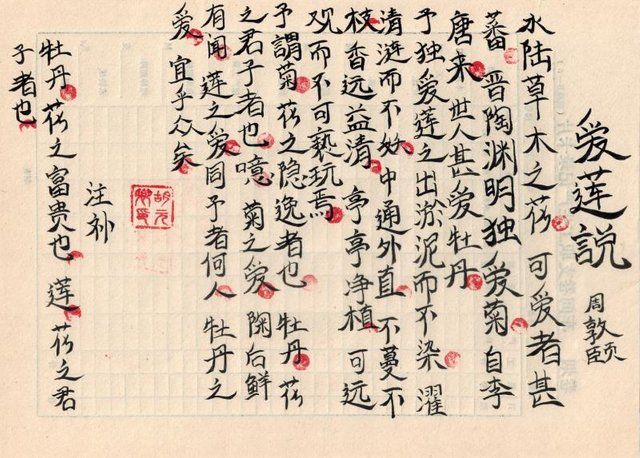 爱莲説
周敦颐
水陆草木之花 可爱者甚
蕃 晋陶渊明独爱菊 自李
唐来 世人甚爱牡丹
予独爱莲之出淤泥而不染 濯
清涟而不妖 中通外直 不蔓不
枝 香远益清 亭亭净植 可远
观而不可亵玩焉
予謂菊 花之隐逸者也 牡丹 花
之君子者也 噫 菊之爱 陶后鲜
有闻 莲之爱 同予者何人 牡丹之
爱 宜乎众矣
注补
牡丹 花之富贵也 莲 花之君
子者也